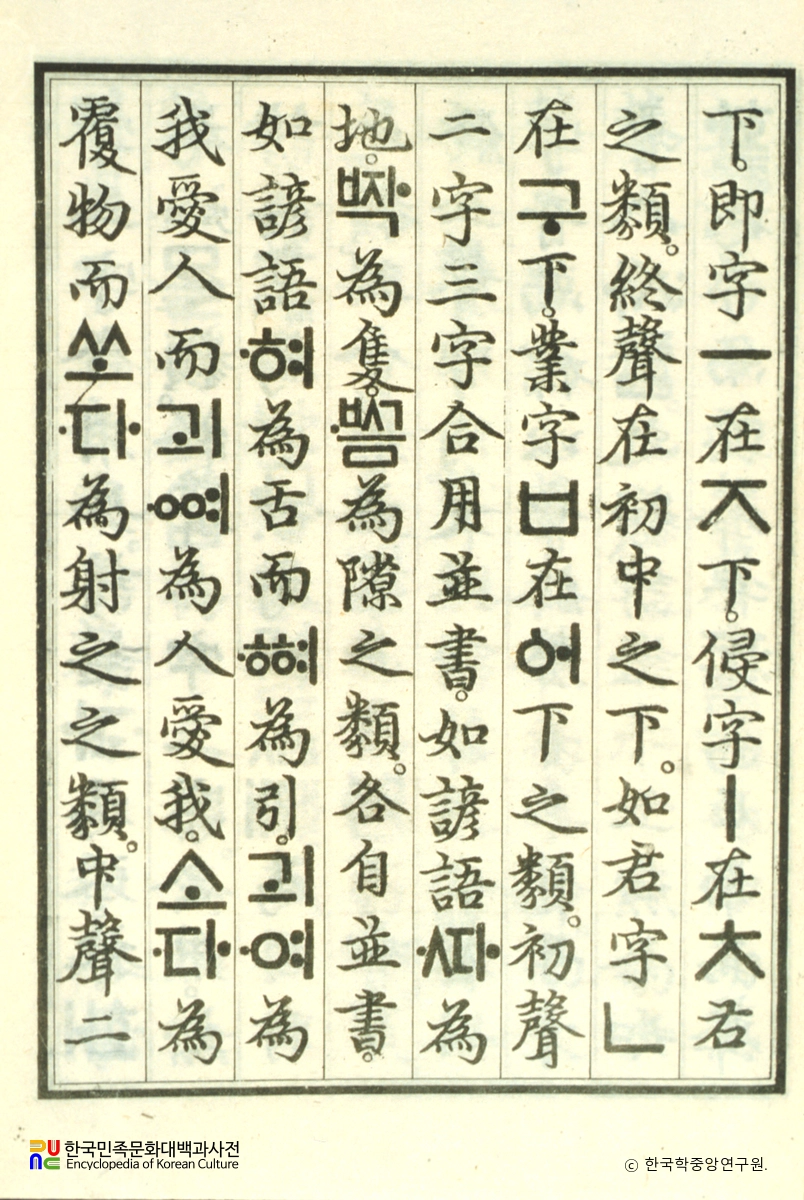 下。即字ㅡ在ㅈ下。侵字ㅣ在ㅊ右
之類。終聲在初中之下。如君字ㄴ
在구下。業字ㅂ在ᅌᅥ下之類。初聲
二字三字合用並書。如諺語·ᄯᅡ為
地。ᄧᅡᆨ為隻。·ᄢᅳᆷ為隙之類。各自並書。
如諺語·혀為舌而·ᅘᅧ為引。괴·여為
我愛人而괴·ᅇᅧ為人愛我。소·다為
覆物而쏘·다為射之之類。中聲二
한국민족문화대백과사전
Encyclopedia of Korean Culture
ⓒ 한국학중앙연구원.